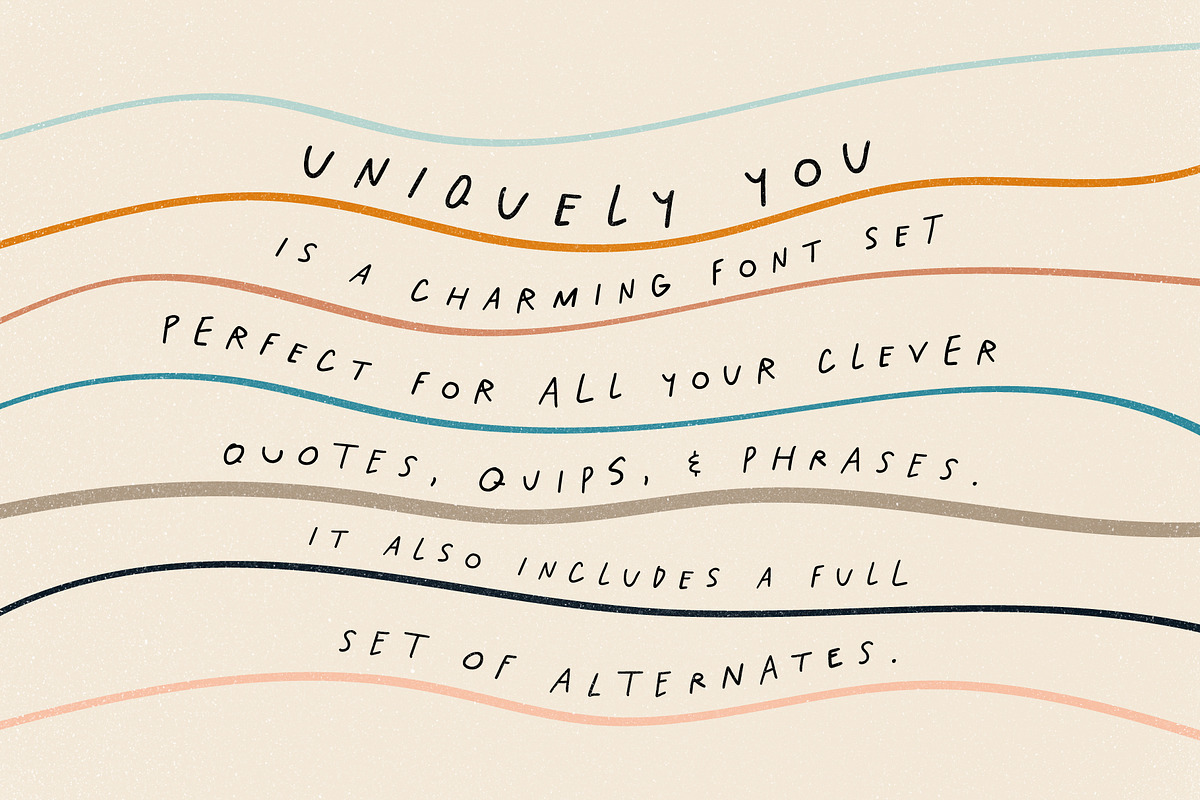 UNIQUELY YOU
IS A CHARMING FONT SET
PERFECT FOR ALL YOUR CLEVER
QUOTES, QUIPS, & PHRASES.
IT ALSO INCLUDES A FULL
SET OF ALTERNATES.